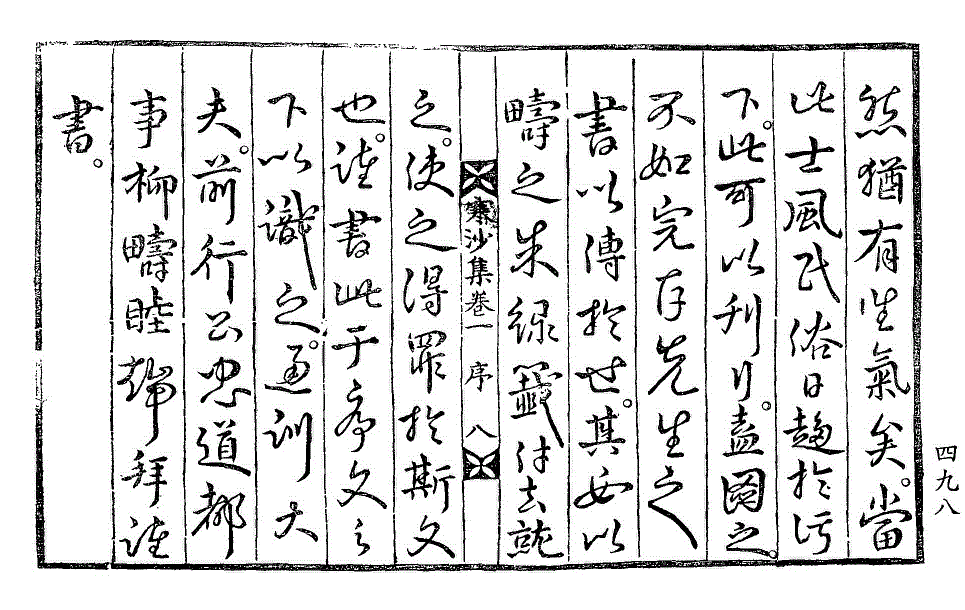 然猶有生氣矣。當
此士風民俗日趨於污
下。此可以刊行。盍圖之。
不如完存先生之
書以傳於世。其毋以
疇之朱綠籤付去就
寒沙集卷一 序 八
之。使之得罪於斯文
也。謹書此于序文之
下以識之。通訓大
夫。前行公忠道都
事柳疇睦拜謹
書。
四九八